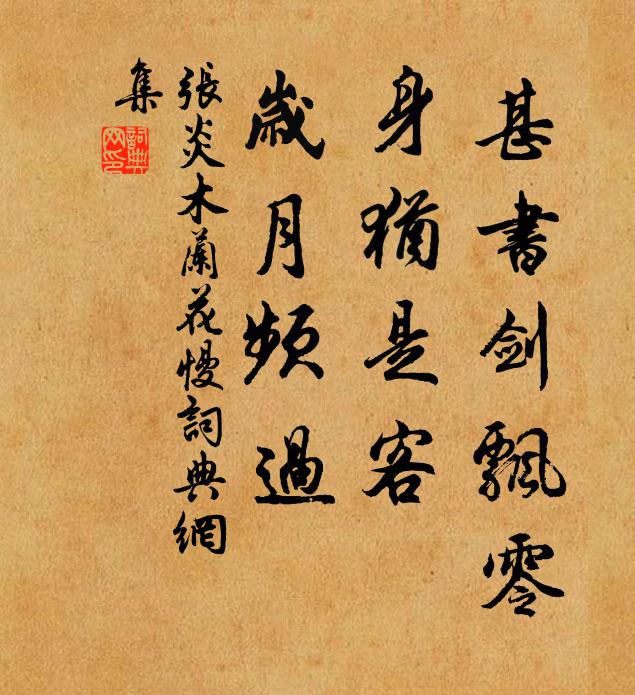 甚書劍飄零
身猶是客
歲月頻過
張炎木蘭花慢詞典網
集
詞典网印